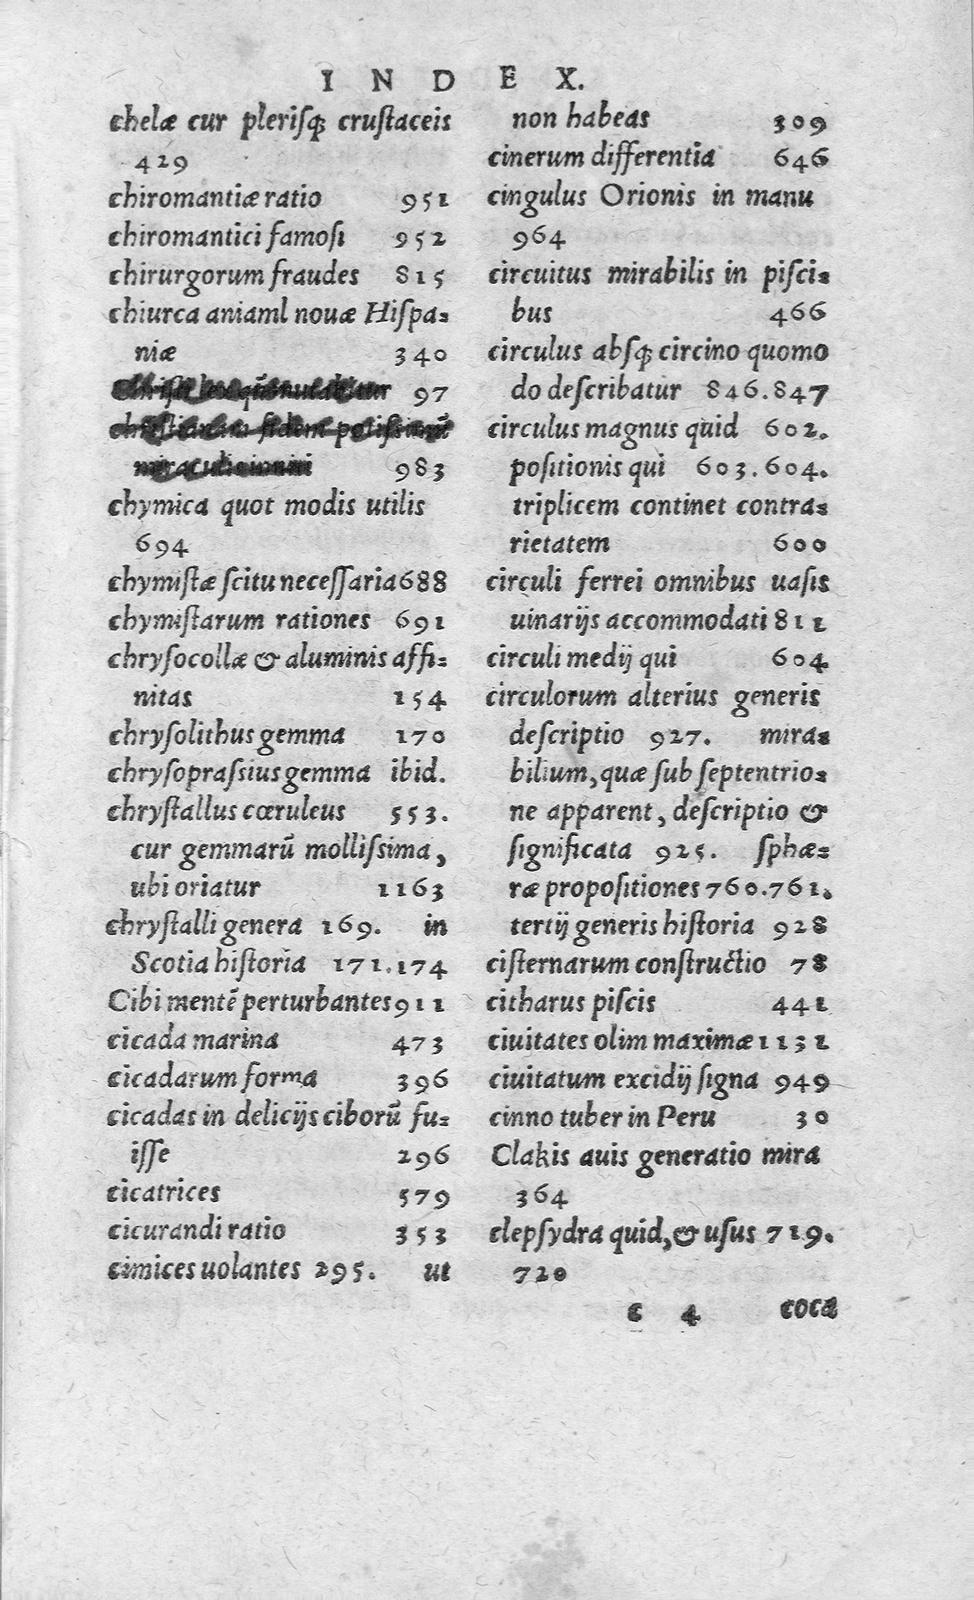 INDEX.
chelæ cur plerisq́; crustaceis
429
chiromantiæ ratio 951
chiromantici famosi 952
chirurgorum fraudes 815
chiurca aniaml nouæ Hispa=
niæ 340
97
christianam fidem potissimū
983
chymica quot modis utilis
694
chymistæ scitu necessaria 688
chymistarum rationes 691
chrysocollæ & aluminis affi=
nitas 154
chrysolithus gemma 170
chrysoprassius gemma ibid.
chrystallus cœruleus 553.
cur gemmarū mollissima,
ubi oriatur 1163
chrystalli genera 169. in
Scotia historia 171.174
Cibi mentē perturbantes 911
cicada marina 473
cicadarum forma 396
cicadas in delicijs ciborū fu=
isse 296
cicatrices 579
cicurandi ratio 353
cimices uolantes 295. ut
non habeas 309
cinerum differentia 646
cingulus Orionis in manu
964
circuitus mirabilis in pisci=
bus 466
circulus absq́; circino quomo
do describatur 846.847
circulus magnus quid 602.
positionis qui 603.604.
triplicem continet contra=
rietatem 600
circuli ferrei omnibus uasis
uinarijs accommodati 811
circuli medij qui 604
circulorum alterius generis
descriptio 927. mira=
bilium, quæ sub septentrio=
ne apparent, descriptio &
significata 925. sphæ=
ræ propositiones 760.761.
tertij generis historia 928
cisternarum constructio 78
citharus piscis 441
ciuitates olim maximæ 1131
ciuitatum excidij signa 949
cinno tuber in Peru 30
Clakis auis generatio mira
364
clepsydra quid, & usus 719.
720
c 4 coca